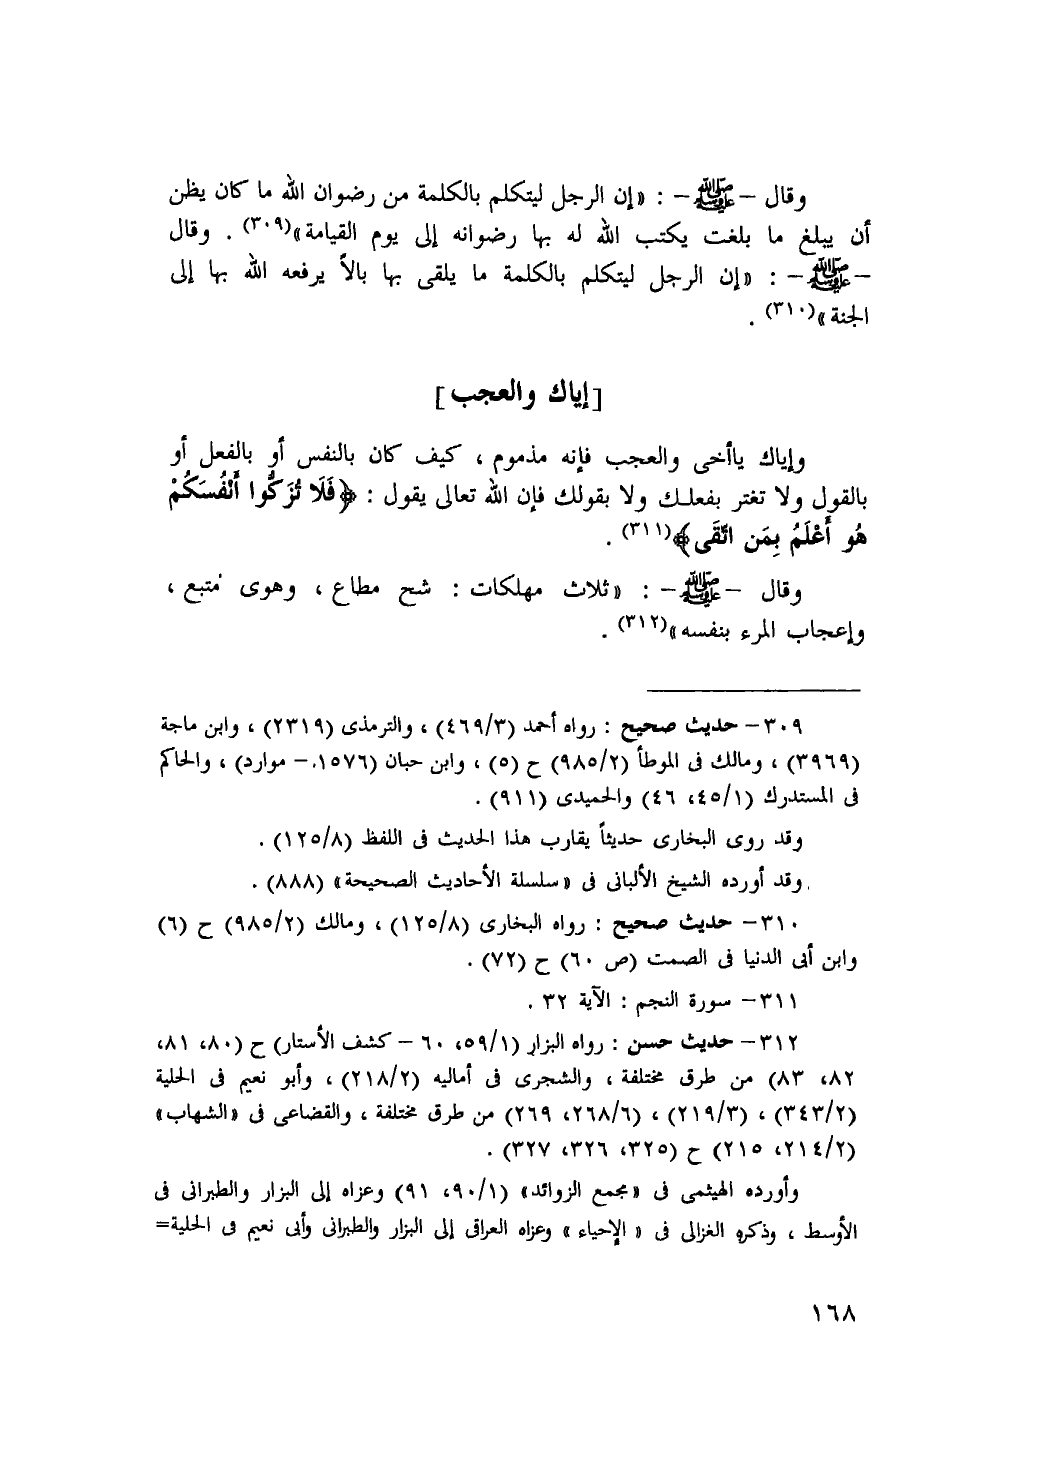 وقال – ﷺ – : «إن الرجل ليتكلم بالكلمة من رضوان الله ما كان يظن
أن يبلغ ما بلغت يكتب الله له بها رضوانه إلى يوم القيامة»(٣٠٩) . وقال
– ﷺ – : «إن الرجل ليتكلم بالكلمة ما يلقى بها بالاً يرفعه الله بها إلى
الجنة»(٣١٠) .
[إياك والعجب]
وإياك ياأخى والعجب فإنه مذموم ، كيف كان بالنفس أو بالفعل أو
بالقول ولا تغتر بفعلك ولا بقولك فإن الله تعالى يقول : ﴿فَلَا تُزَكُّوا أَنْفُسَكُمْ
هُو أَعْلَمُ بِمَن اتَّقَى﴾(٣١١) .
وقال – ﷺ – : «ثلاث مهلكات : شح مطاع ، وهوى متبع ،
وإعجاب المرء بنفسه»(٣١٢) .
٣٠٩ – حديث صحيح : رواه أحمد (٤٦٩/٣) ، والترمذى (٢٣١٩) ، وابن ماجة
(٣٩٦٩) ، ومالك فى الموطأ (٩٨٥/٢) ح (٥) ، وابن حبان (١٥٧٦ – موارد) ، والحاكم
فى المستدرك (٤٥/١، ٤٦) والحميدى (٩١١) .
وقد روى البخارى حديثاً يقارب هذا الحديث فى اللفظ (١٢٥/٨) .
وقد أورده الشيخ الألبانى فى «سلسلة الأحاديث الصحيحة» (٨٨٨) .
٣١٠ – حديث صحيح : رواه البخارى (١٢٥/٨) ، ومالك (٩٨٥/٢) ح (٦)
وابن أبى الدنيا فى الصمت (ص ٦٠) ح (٧٢) .
٣١١ – سورة النجم : الآية ٣٢ .
٣١٢ – حديث حسن : رواه البزار (٥٩/١، ٦٠ – كشف الأستار) ح (٨٠، ٨١،
٨٢، ٨٣) من طرق مختلفة ، والشجرى فى أماليه (٢١٨/٢) ، وأبو نعيم فى الحلية
(٣٤٣/٢) ، (٢١٩/٣) ، (٢٦٨/٦، ٢٦٩) من طرق مختلفة ، والقضاعى فى «الشهاب»
(٢١٤/٢، ٢١٥) ح (٣٢٥، ٣٢٦، ٣٢٧) .
وأورده الهيثمى فى «مجمع الزوائد» (٩٠/١، ٩١) وعزاه إلى البزار والطبرانى فى
الأوسط ، وذكره الغزالى فى « الإحياء » وعزاه العراقى إلى البزار والطبرانى وأبى نعيم فى الحلية=
١٦٨